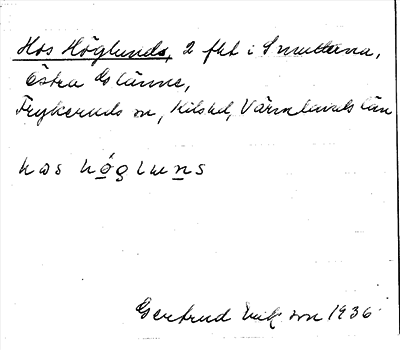 Hos Höglunds, 2 fht i Smutterna,
Östra Glänne,
Frykeruds sn, Kils hd, Värmlands län
hos hö́gluns
Gertrud
1936